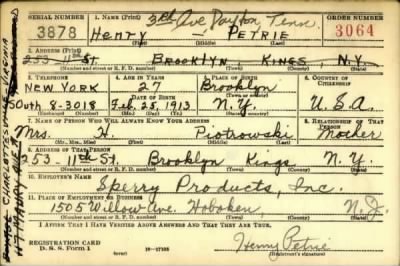 SERIAL NUMBER 1. NAME (Print) 3rd Ave Dayton, Tenn. ORDER NUMBER
3878 HENRY — PETRIE 3064
(First) (Middle) (Last)
2. ADDRESS (Print)
253-11th St. BROOKLYN KINGS, N.Y.
(Number and street or R. F. D. number) (Town) (County) (State)
3. TELEPHONE 4. AGE IN YEARS 5. PLACE OF BIRTH 6. COUNTRY OF CITIZENSHIP
NEW YORK 27 Brooklyn
(Town or county)
SOuth 8-3018 Feb. 25, 1913 N.Y. U.S.A.
(Exchange) (Number) (Mo.) (Day) (Yr.) (State or country)
7. NAME OF PERSON WHO WILL ALWAYS KNOW YOUR ADDRESS 8. RELATIONSHIP OF THAT PERSON
Mrs. H. Piotrowski Mother
(Mr., Mrs., Miss) (First) (Middle) (Last)
9. ADDRESS OF THAT PERSON
253-11th St. Brooklyn Kings, N.Y.
(Number and street or R. F. D. number) (Town) (County) (State)
10. EMPLOYER'S NAME
Sperry Products, Inc.
11. PLACE OF EMPLOYMENT OR BUSINESS
1505 Willow Ave. Hoboken, N.J.
(Number and street or R. F. D. number) (Town) (County) (State)
I AFFIRM THAT I HAVE VERIFIED ABOVE ANSWERS AND THAT THEY ARE TRUE.
REGISTRATION CARD
D. S. S. Form 1 16-17105 Henry Petrie
(over) (Registrant's signature)
CHARLESTON, VIRGINIA
MAURY